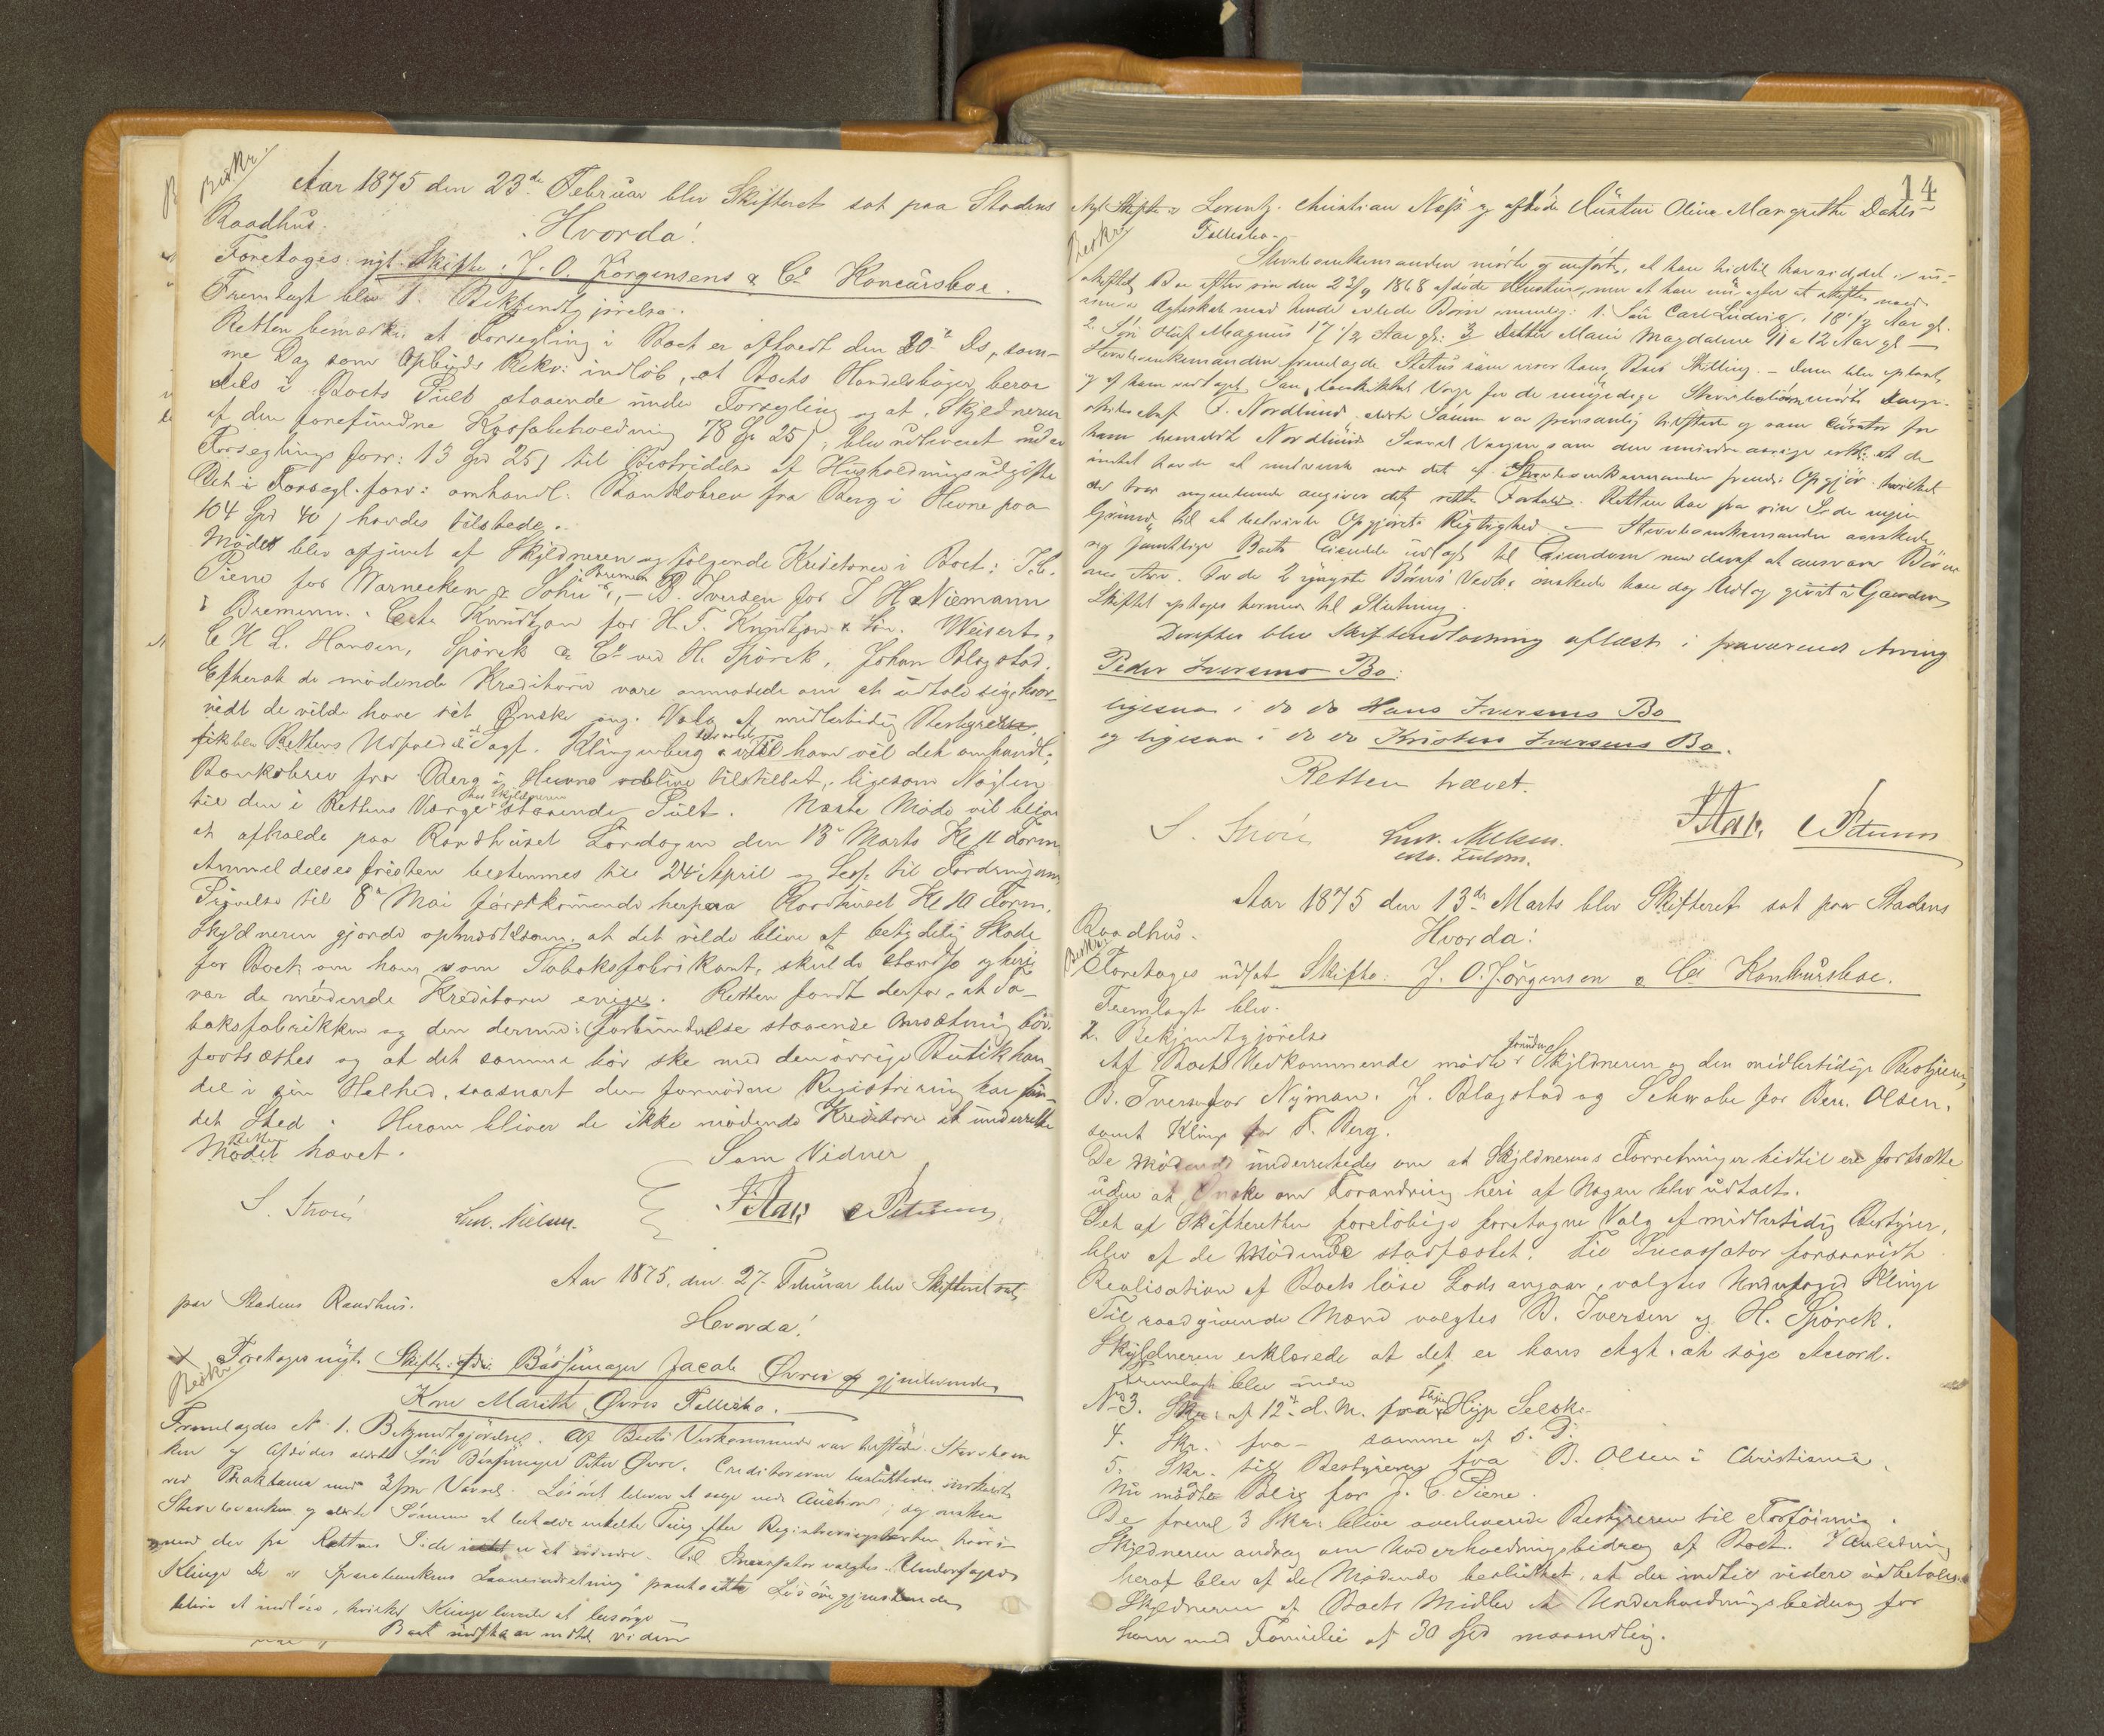 Beskr.
Aar 1875 den 23de Februar blev Skifteret sat paa Stadens
Raadhus.
Hvorda!
Foretoges nyt Skifte: J. O. Jörgensens & Co Koncursboe.
Fremlagt blev 1. Bekjendtgjörelse.
Retten bemærker at Forsegling i Boet er afholdt den 20de Ds, sam-
me Dag som Opbuds Rekv: indlöb, at Boets Handelsböger beroe
dels i Boets Pult staaende under Forsegling og at Skyldneren
af den forefundne Kassabeholdning 78 Spd 25 s, blev udleveret under
Forseglings forr: 13 Spd 25 s til Bestridelse af Husholdningsudgifter
Det i Forsegl. forr: omhandl: Bankobrev fra Berg i Hevne paa
104 Spd 40 s havdes tilstede.
Mödet blev afgivet af Skyldneren og fölgende Kreditorer i Boet: J. C.
Piene for Warnecken & Sohn Bremen, – B. Iversen for J H Niemann
i Bremen. Knudtzon for H. T. Knudtzon & Sön. Weisert,
C H L. Hansen, Spörck & Co ved H. Spörck, Johan Blogstad.
Efterat de mödende Kreditorer vare anmodede om at udtale sig, hvor-
vidt de vilde have det Önske ang. Valg af midlertidig Bestyrelse,
fik blev Rettens Sagf. Klingenberg. Til ham vil det omhandl.
Bankobrev fra Berg i Hevne blive tilstillet, ligesom Nöglen
til den i Rettens Værge hos Skyldneren staaende Pult. Næste Möde vil blive
at afholde paa Raadhuset Löndagen den 13de Marts Kl 11 Form.
Anmeldelsesfristen bestemmes til 24de April og Sess. til Fordringernes
Prövelse til 8de Mai förstkommende herpaa Raadhuset Kl 10 Form.
Skyldneren gjorde opmærksom, at det vilde blive af betydelig Skade
for Boet, om hans som Tobaksfabrikant, skulde standse og heri
var de mödende Kreditorer enige. Retten fandt derfor, at To-
baksfabrikken og den dermed i forbindelse staaende Omsætning bör
fortsættes og at det samme bör ske med den övrige Butikhan-
del i sin Helhed, saasnart den fornödne Registrering har fun-
det Sted. Herom bliver de ikke mödende Kreditorer at underrette
Mödet Retten hævet.
Som Vidner
Aar 1875, den 27 Februar blev Skifteret sat
paa Stadens Raadhus.
Hvorda!
Beskr.
Foretoges nyt Skifte: afdöde Bössemager Jacob Övres og gjenlevende
Kone Marith Övres Fællesbo.
Fremlagdes N 1. Bekjendtgjörelse. Af Boets Vedkommende var tilstede Stervboen
ken og Afdödes ældste Sön Bössemager Peter Övre. Creditorerne besluttedes indkaldt
ved Proklama med 3 mr Varsel. Lösöret bliver at sælge ved Auction; dog ønsker
Stervboenken og ældste Sönnen at beholde enkelte Ting efter Registreringstaxten, hvori-
mod der fra Rettens Side er at erindre. Til Incassator valgtes Underfoged
Klinge De i "Sparebankens Laaneindretning" pantsatte Lösöregjenstande
blive at indlöse, hvilket Klinge lovede at besörge –
Boet udsattes indtil videre
14
Nyt Skifte i Lorentz Christian Næss og afdöde Hustru Oline Margrethe Dahls
Fællesbo.–
Beskr.
Stervboenkemanden mödte og anförte, at han hidtil har siddet i u-
skiftet Bo efter sin den 23/9 1868 afdöde Hustru, men at han nu agter at skifte med
sine i Ægteskab med hende avlede Börn nemlig: 1. Sön Carl Ludvig, 18 1/2 Aar gl.
2. Sön Oluf Magnus 17 1/2 Aar gl: 3 Datter Marie Magdalene 11 a 12 Aar gl –
Stervboenkemanden fremlagde Status som viser hans Boes Stilling. – Denne blev oplæst
og af ham vedtaget. Som beskikket Værge for de umyndige Stervboebörn mödte
F. Nordlund. ældste Sönnen var personlig tilstede og som Curator for
ham Nordlund. Saavel Værgen som den mindreaarige erkl: at de
intet havde at indvende mod det af Stervboenkemanden fremlagte Opgjör, hvilket
de tror angiver det rette Forhold. Retten har fra sin Side ingen
Grund til at betvivle Opgjörets Rigtighed – Stervboenkemanden önskede
sig samtlige Boets Eiendele udlagt til Eiendom mod deraf at ansvare Börne-
nes Arv. For de 2 yngste Börns Vedk: önskede han dog Udlæg givet i Gaarden
Skiftet optages hermed til Slutning.
Derefter blev Skifteudlodning aflæst i fraværende Arving
Peder Iversens Bo.
ligesaa i do do Hans Iversens Bo
og ligesaa i do do Kristen Iversens Bo.
Retten hævet.
Aar 1875 den 13de Marts blev Skifteret sat paa Stadens
Raadhus.
Hvorda!
Beskr.
Foretoges udsat Skifte: J. O. Jörgensen & Co Konkursboe.
Fremlagt blev.
2. Bekjendtgjörelse
Af Boets Vedkommende mödte foruden Skyldneren og den midlertidige Bestyrer,
B. Iversen for Nyman. J. Blogstad og Schwabe for Ber. Olsen.
samt Klinge for F. Berg.
De Mödende underrettedes om at Skyldnerens Forretninger hidtil ere fortsatte
uden at Önske om Forandring heri af Nogen blev udtalt.
Det af Skifteretten forelöbige foretagne Valg af midlertidig Bestyrer,
blev af de Mödende stadfæstet. Til Incassator forsaavidt
Realisation af Boets löse Gods angaar, valgtes Underfoged Klinge
Til raadgivende Mænd valgtes B. Iversen og H. Spörck.
Skyldneren erklærede at det er hans Agt at söge Accord.
Fremlagt blev endv
No 3. Skr: af 12te d. M. fra Thjem Hyp Selsk.
4. Skr. fra – samme af s. D.
5. Skr. till Bestyreren fra B. Olsen i Christiania.
Nu mödte Blix for J. C. Piene.
De freml 3 Skr: blive overleverede Bestyreren til Forföining.
Skyldneren androg om Underholdningsbidrag af Boet. I Anledning
heraf blev af de Mödende besluttet, at der indtil videre udbetales
Skyldneren af Boets Midler et Underholdningsbidrag for
ham med Familie af 30 Spd maanedlig.